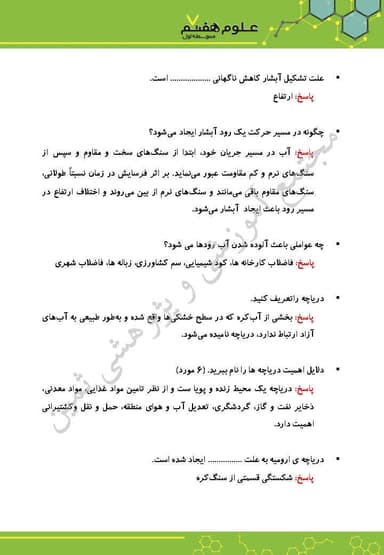 علوم هفتم ۷
متوسطه اول
▪ علت تشکیل آبشار کاهش ناگهانی .................... است.
پاسخ: ارتفاع
▪ چگونه در مسیر حرکت یک رود آبشار ایجاد می‌شود؟
پاسخ: آب در مسیر جریان خود، ابتدا از سنگ‌های سخت و مقاوم و سپس از
سنگ‌های نرم و کم مقاومت عبور می‌نماید. بر اثر فرسایش در زمان نسبتاً طولانی،
سنگ‌های مقاوم باقی می‌مانند و سنگ‌های نرم از بین می‌روند و اختلاف ارتفاع در
مسیر رود باعث ایجاد آبشار می‌شود.
▪ چه عواملی باعث آلوده شدن آب رودها می شود؟
پاسخ: فاضلاب کارخانه ها، کود شیمیایی، سم کشاورزی، زباله ها، فاضلاب شهری
▪ دریاچه راتعریف کنید.
پاسخ: بخشی از آب‌کره که در سطح خشکی‌ها واقع شده و به‌طور طبیعی به آب‌های
آزاد ارتباط ندارد، دریاچه نامیده می‌شود.
▪ دلایل اهمیت دریاچه ها را نام ببرید. (۶ مورد)
پاسخ: دریاچه یک محیط زنده و پویا ست و از نظر تامین مواد غذایی، مواد معدنی،
ذخایر نفت و گاز، گردشگری، تعدیل آب و هوای منطقه، حمل و نقل وکشتیرانی
اهمیت دارد.
▪ دریاچه ی ارومیه به علت ................ ایجاد شده است.
پاسخ: شکستگی قسمتی از سنگ‌کره
مجتمع آموزشی و پژوهشی ثمین